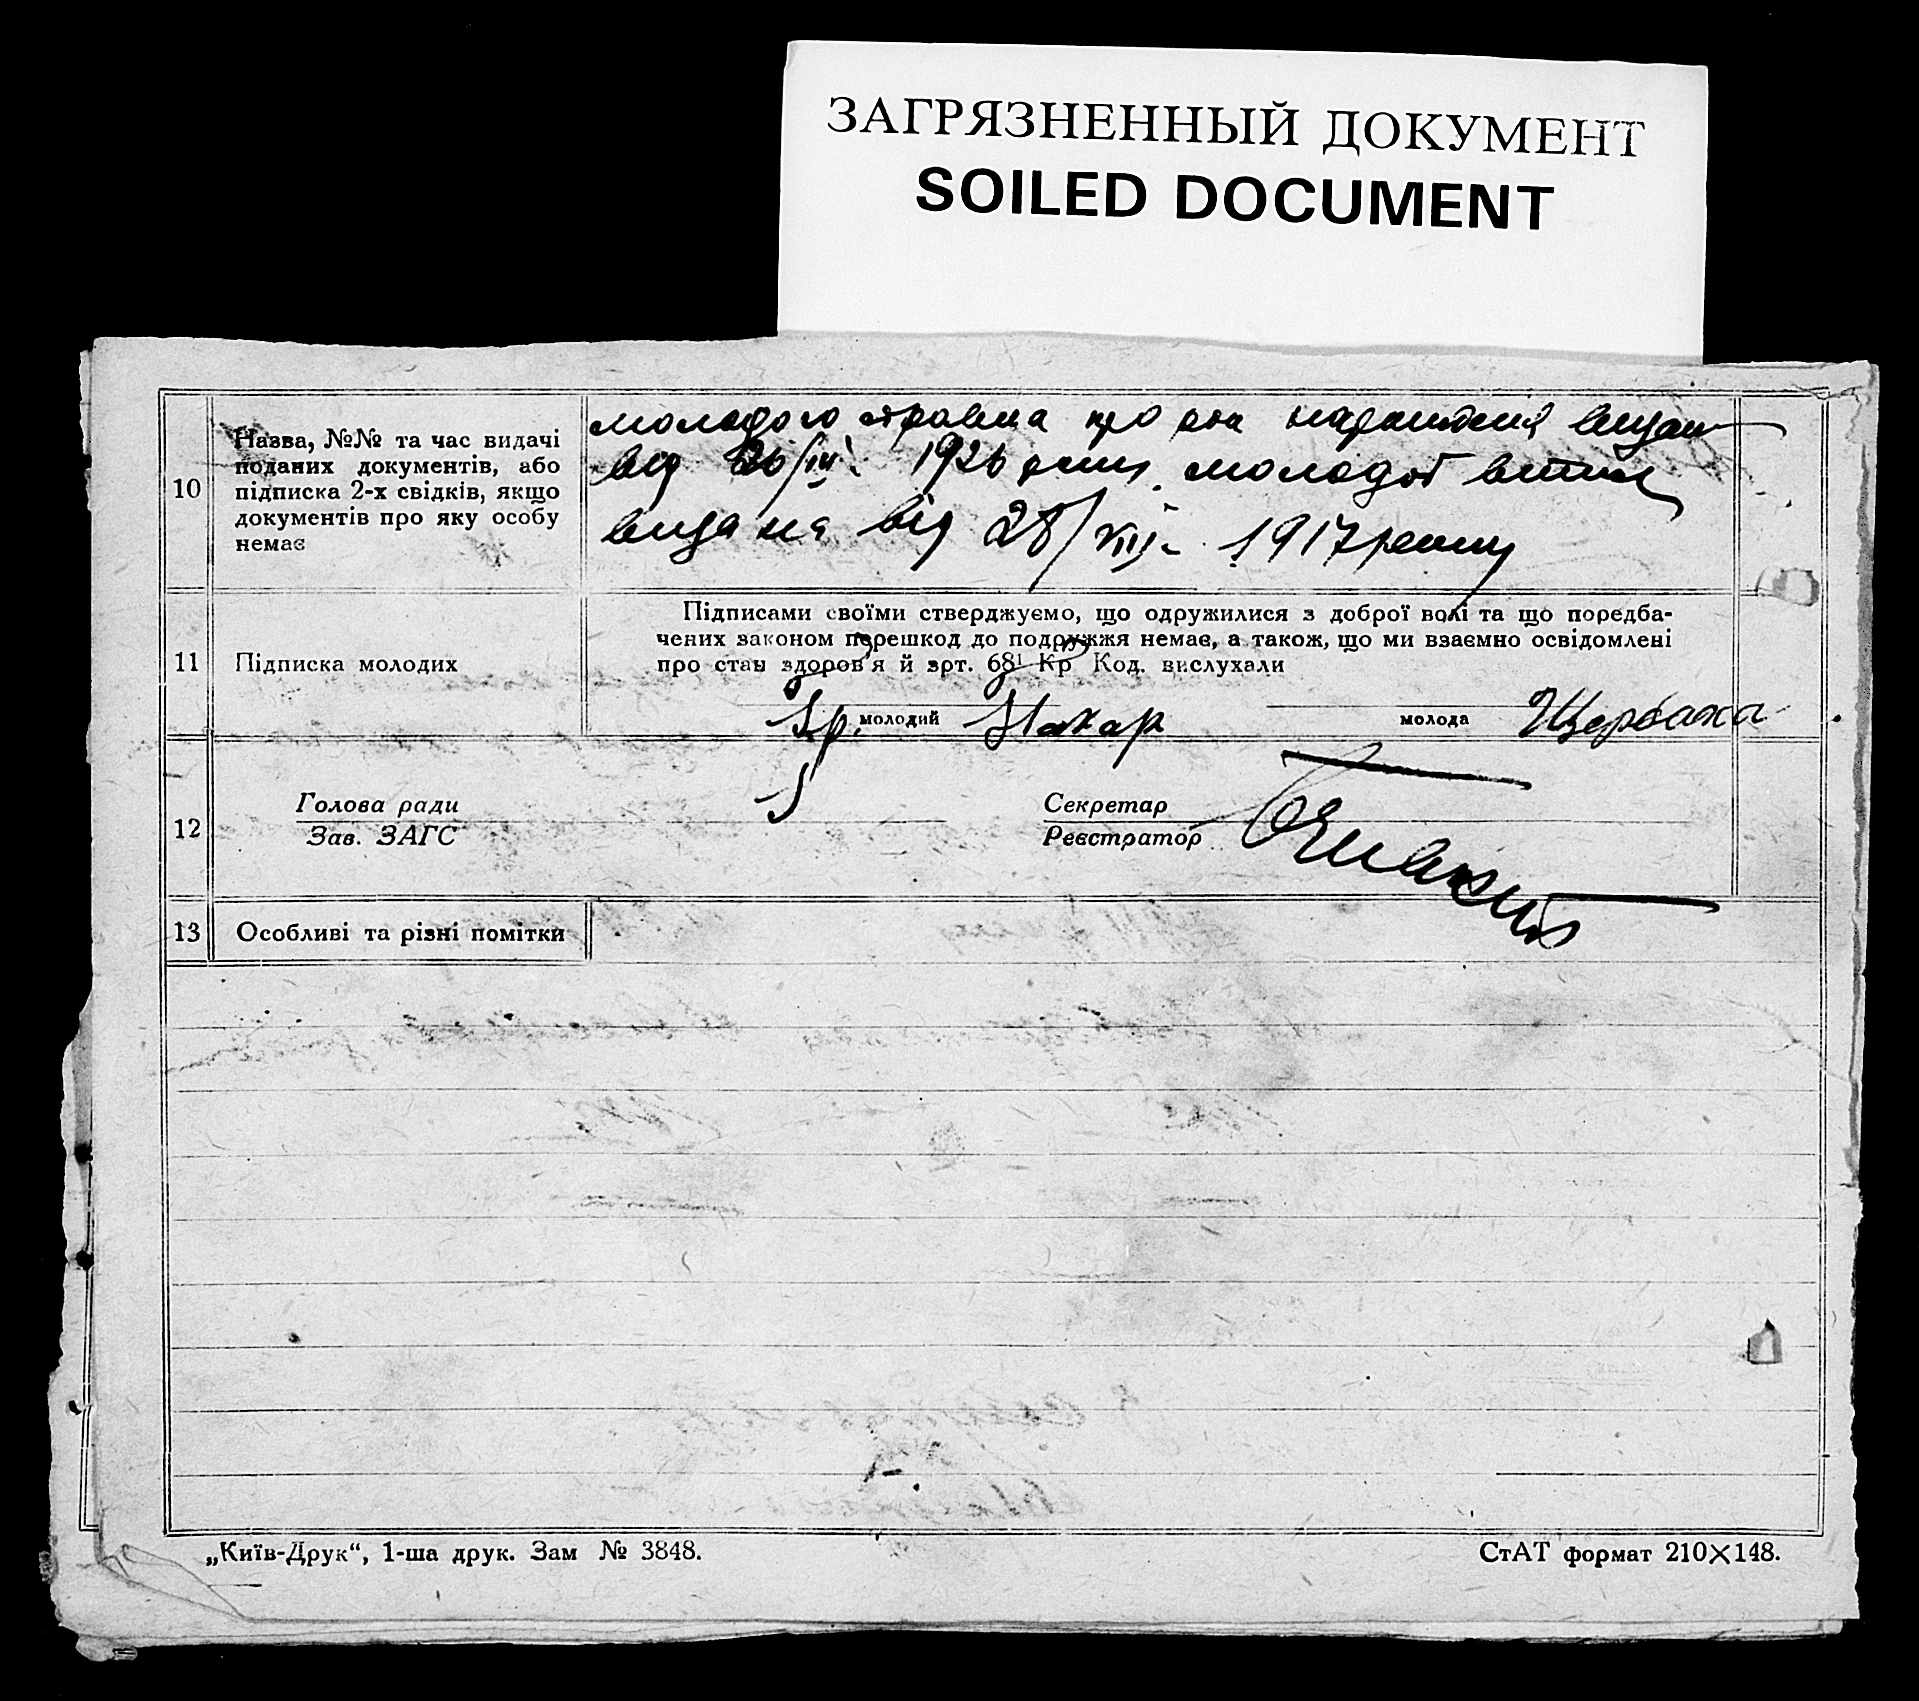 ЗАГРЯЗНЕННЫЙ ДОКУМЕНТ
SOILED DOCUMENT
10
Назва, №№ та час видачі
поданих документів, або
підписка 2-х свідків, якщо
документів про яку особу
немає
молодого про видан
від 26/ІІІ 1926 року. молодої витяг
видана від 28/XIII 1917 року
11
Підписка молодих
Підписами своїми стверджуємо, що одружилися з доброї волі та що передба-
чених законом перешкод до подружжя немає, а також, що ми взаємно освідомлені
про стан здоров'я й арт. 68¹ Кр Код. вислухали
Гр. молодий молода Щербаха
12
Голова ради
Зав. ЗАГС
Секретар
Реєстратор
13
Особливі та різні помітки
„Київ-Друк“, 1-ша друк. Зам № 3848.
СтАТ формат 210×148.